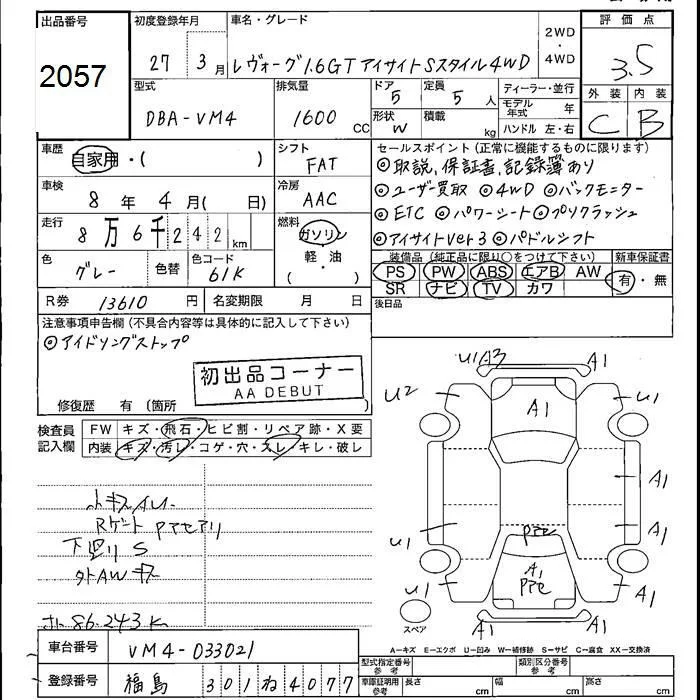 出品番号 初度登録年月 車名・グレード 2WD・4WD 評価点
2057 27 3月 レヴォーグ1.6GT アイサイトSスタイル4WD 3.5
型式 排気量 ドア 5 定員 5人 ディーラー・並行 外装 内装
DBA-VM4 1600 CC 形状 W 積載 kg モデル年式 年 C B
ハンドル 左・右
車歴 自家用・( ) シフト FAT セールスポイント (正常に機能するものに限ります)
◎取説,保証書,記録簿あり
車検 8年 4月( 日) 冷房 AAC ◎ユーザー買取 ◎4WD ◎バックモニター
走行 8万6千242km 燃料 ガソリン ◎ETC ◎パワーシート◎プリクラッシュ
軽・油 ◎アイサイトver3 ◎パドルシフト
色 グレー 色替 色コード 61K ( ) 装備品 (純正品に限り○をつけて下さい) 新車保証書
PS PW ABS エアB AW 有・無
SR ナビ TV カワ
R券 13610円 名変期限 月 日 後日品
注意事項申告欄 (不具合内容等は具体的に記入して下さい)
◎アイドリングストップ
初出品コーナー
AA DEBUT
修復歴 有 (箇所 )
検査員記入欄 FW キズ・飛石・ヒビ割・リペア跡・X要
内装 キズ・汚レ・コゲ・穴・スレ・キレ・破レ
小キズAU
Rゲート Pアセアリ
下廻り S
外AW キズ
86.243K
U1A3 A1
U2 A1 U1
A1
U1 A1
Pアセ
U1 A1 A1
Pアセ
スペア A1 A1
A-キズ E-エクボ U-凹み W-補修跡 S-サビ C-腐食 XX-交換済
車台番号 VM4-033021
登録番号 福島 301ね4077
型式指定番号 参考 類別区分番号 参考
車庫証明用 参考 長さ cm 幅 cm 高さ cm